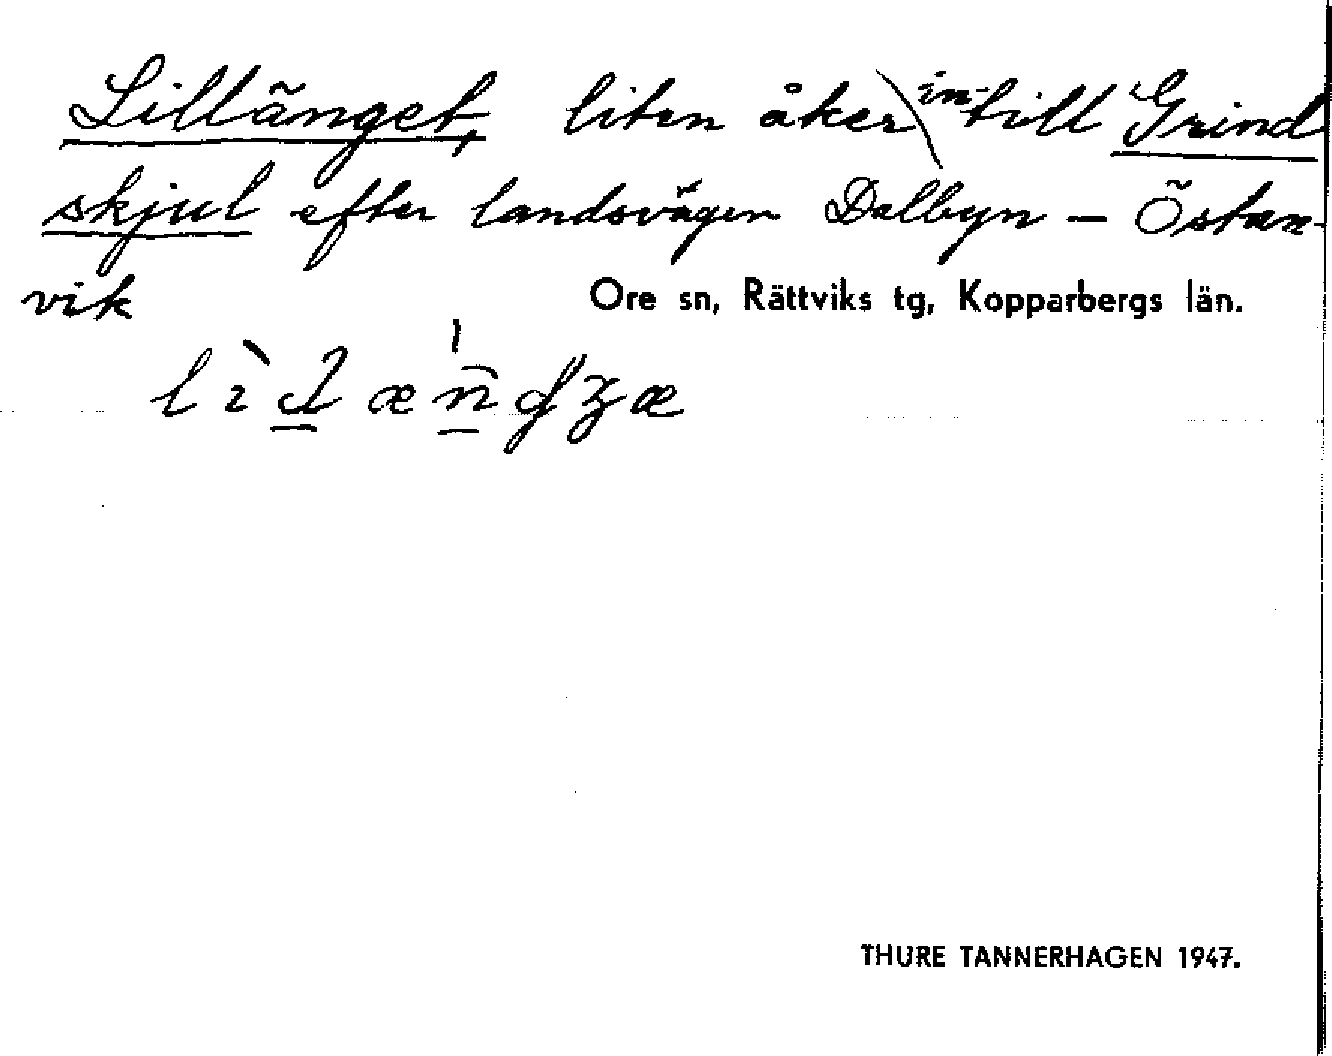 Lillänget, liten åker in-till Grind
skjul efter landsvägen Dalbyn – Östan-
vik
Ore sn, Rättviks tg, Kopparbergs län.
THURE TANNERHAGEN 1947.